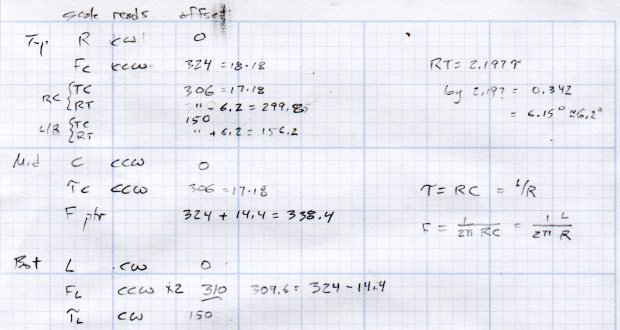 scale reads offset
Top R CW 0
Fc CCW 324 = 18·18
RC { TC 306 = 17·18
RT " - 6.2 = 299.8
L/R { TC 150
RT " + 6.2 = 156.2
RT = 2.197 τ
log 2.197 = 0.342
= 6.15° ≅ 6.2°
Mid C CCW 0
τc CCW 306 = 17·18
F ptr 324 + 14.4 = 338.4
τ = RC = L/R
F = 1/2π RC = 1/2π L/R
Bot L CW 0
FL CCW x2 310 309.6 = 324 - 14.4
τL CW 150